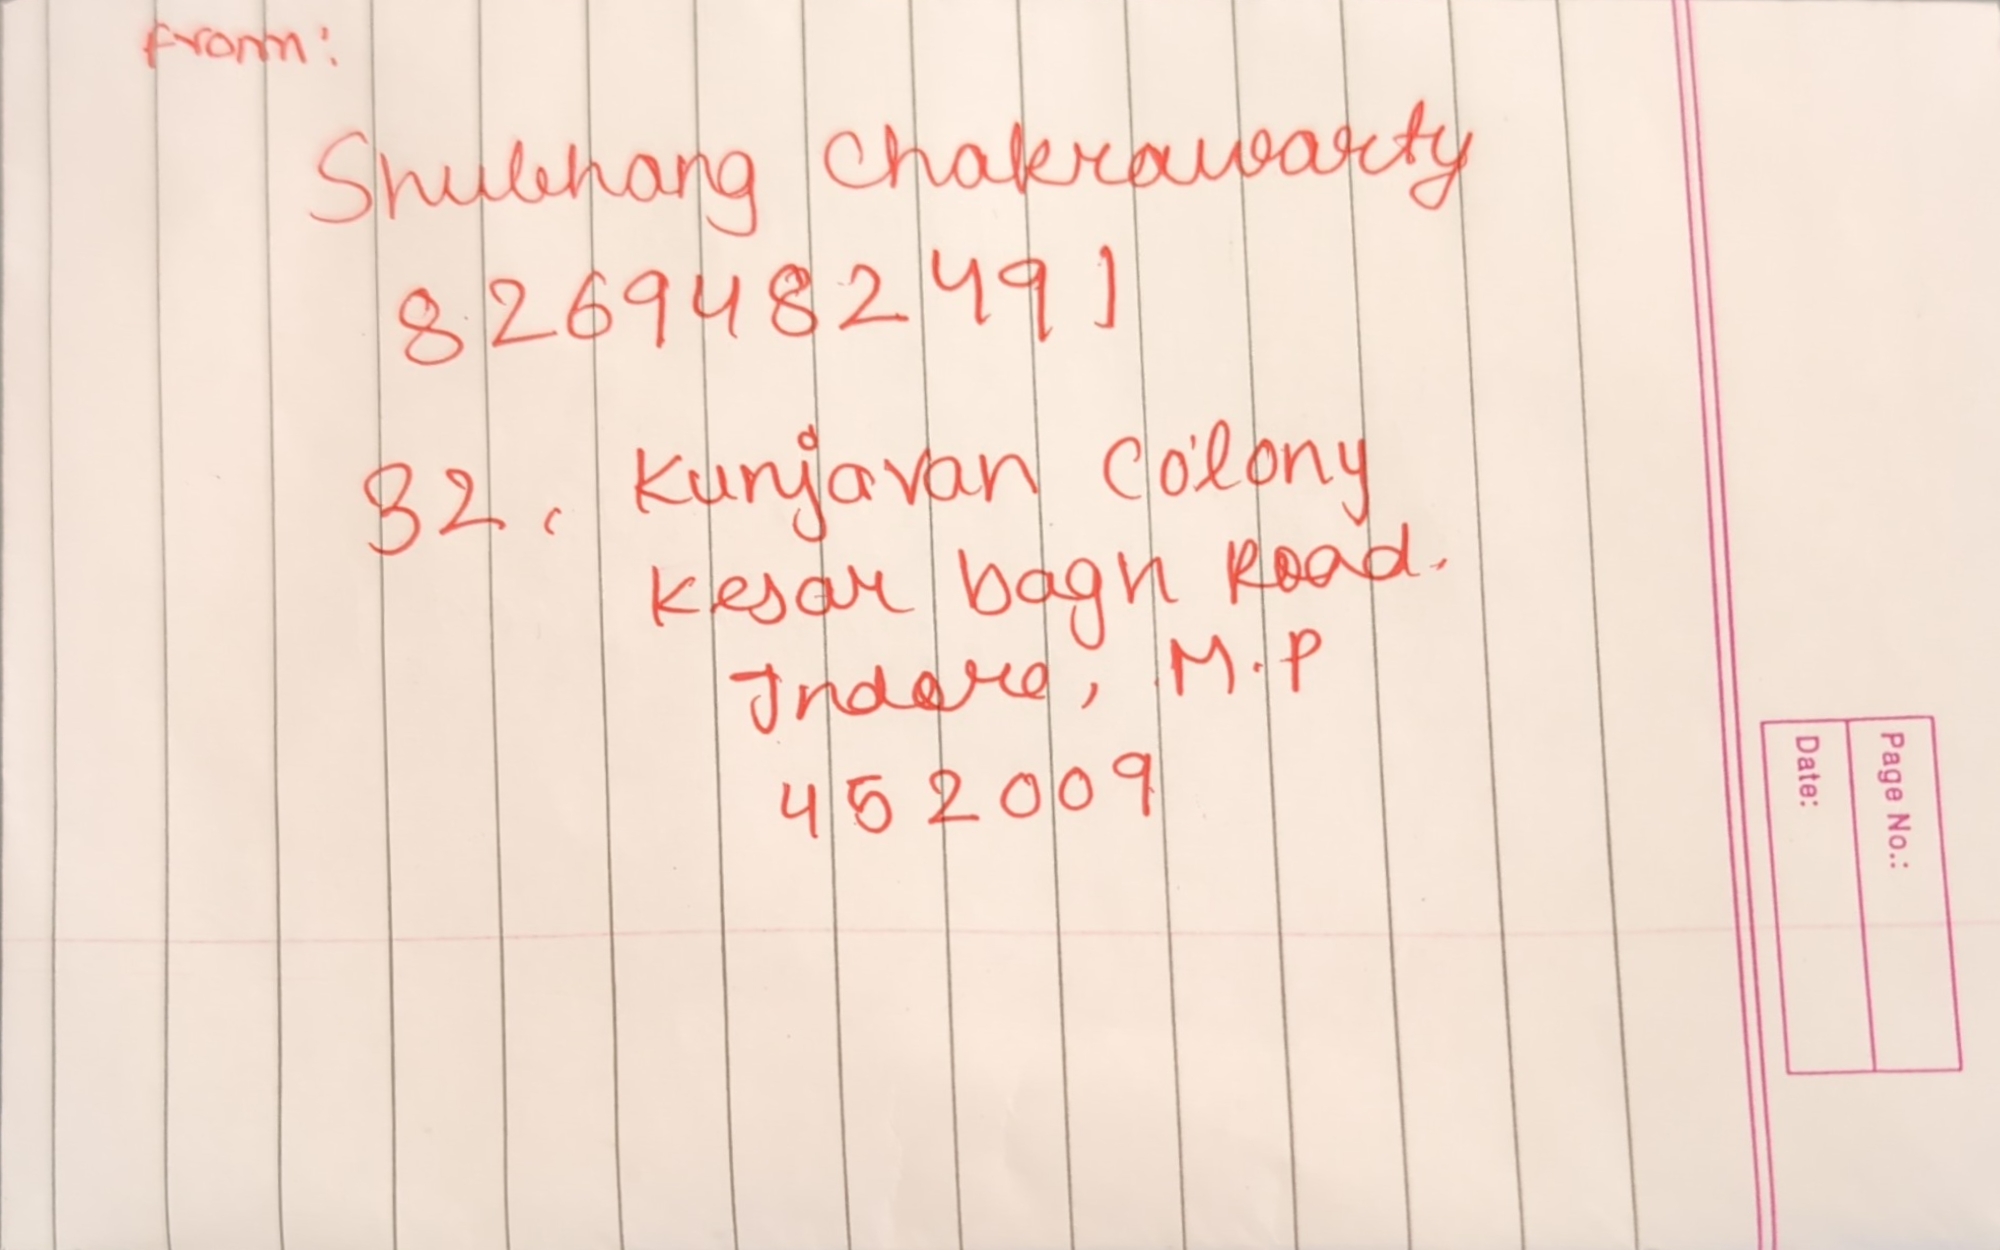 from:
Shubhang Chakrawarty
8269482491
32, Kunjavan Colony
Kesar bagh Road.
Indore, M.P
452009
Page No.:
Date: